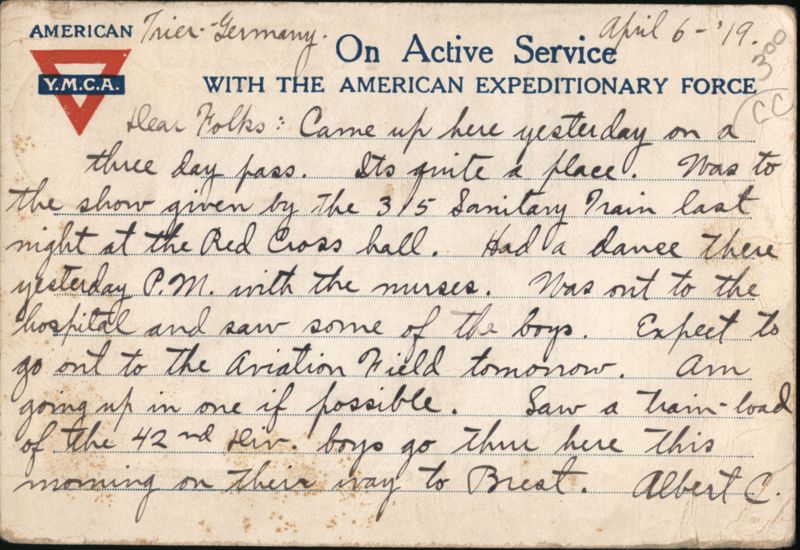 AMERICAN Trier-Germany. April 6-'19.
Y.M.C.A.
On Active Service
WITH THE AMERICAN EXPEDITIONARY FORCE
300
CC
Dear Folks: Came up here yesterday on a
three day pass. Its quite a place. Was to
the show given by the 315 Sanitary Train last
night at the Red Cross hall. Had a danse there
yesterday P.M. with the nurses. Was out to the
hospital and saw some of the boys. Expect to
go out to the Aviation Field tomorrow. Am
going up in one if possible. Saw a train-load
of the 42nd Div. boys go thru here this
morning on their way to Brest. Albert C.